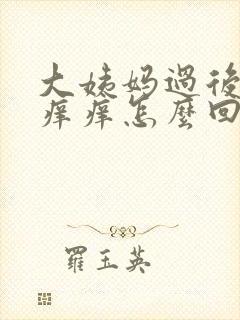 大姨妈過後
痒痒怎麼回
羅玉英